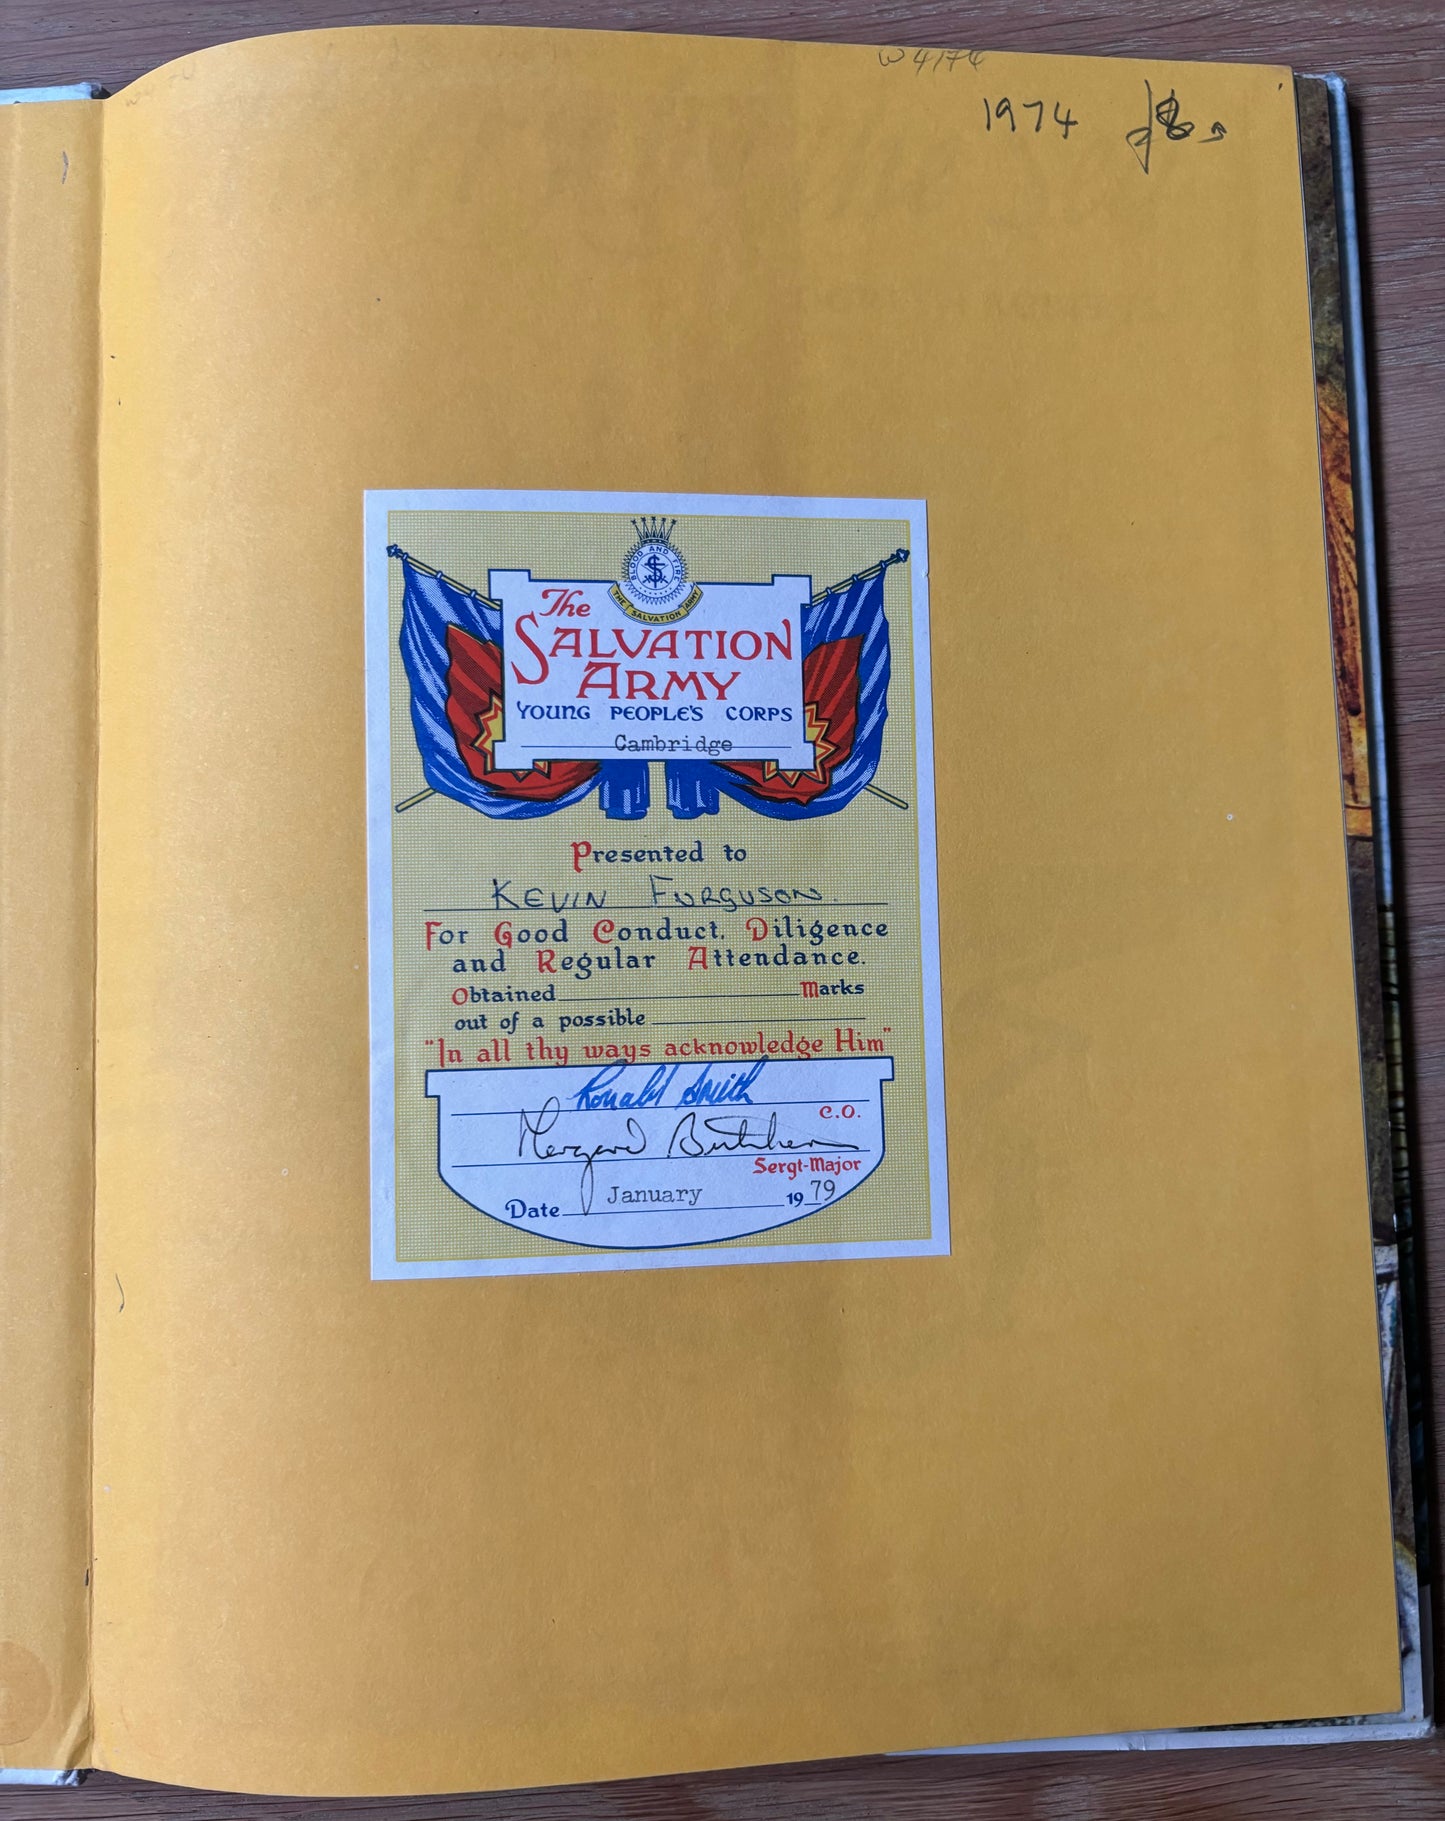 W 4/74
1974
BLOOD AND FIRE
THE SALVATION ARMY
The
SALVATION
ARMY
YOUNG PEOPLE'S CORPS
Cambridge
Presented to
KEVIN FURGUSON.
For Good Conduct, Diligence
and Regular Attendance.
Obtained Marks
out of a possible
"In all thy ways acknowledge Him"
Ronald Smith
C.O.
Margaret
Sergt-Major
Date January 1979